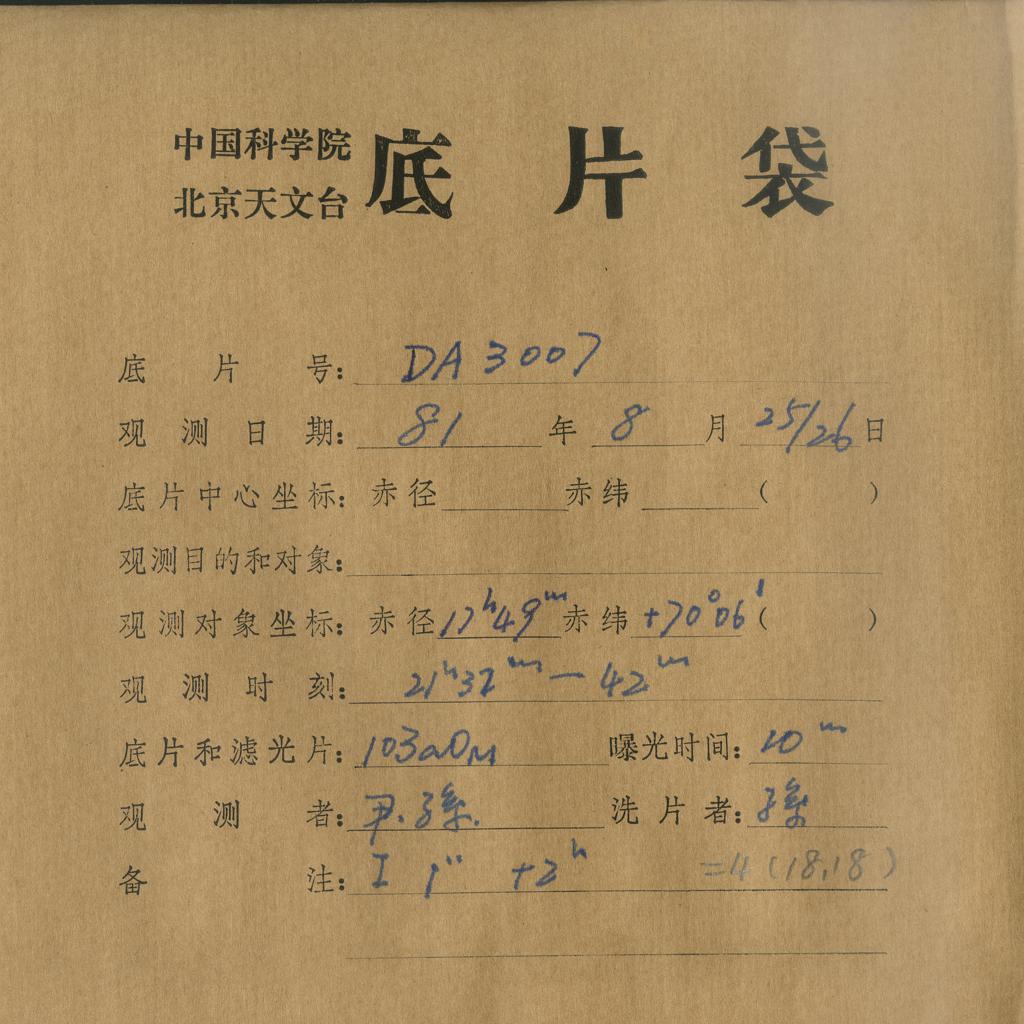 中国科学院
北京天文台 底片袋
底片号: DA 3007
观测日期: 81 年 8 月 25/26 日
底片中心坐标: 赤径 赤纬 ( )
观测目的和对象:
观测对象坐标: 赤径 17ʰ49ᵐ 赤纬 +70°06′ ( )
观测时刻: 21ʰ32ᵐ — 42ᵐ
底片和滤光片: 103aO 曝光时间: 10ᵐ
观测者: 尹. 孫. 洗片者: 孫
备注: I 1" +2ʰ =4 (18,18)